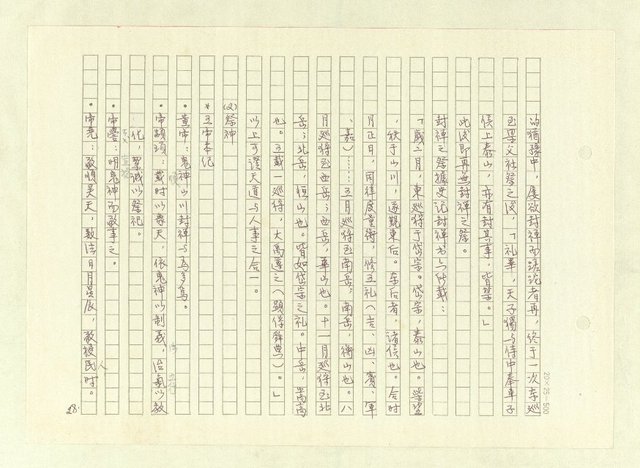 治禎禪中，屢啟封禪而議說者再，終于一次東巡
至畢文社祭之後，「禮畢，天子獨與侍中奉車子
侯上泰山，亦有封其事，皆禁。」
此後即再無封禪之祭。
封禪之祭據史記封禪書今所載：
「歲二月，東巡狩至于岱宗。岱宗，泰山也。柴望
秩于山川，遂覲東后。東后者，諸侯也。合時
月正日，同律度量衡，修五禮（吉、凶、賓、軍
、嘉）……五月巡狩至南岳；南岳，衡山也。八
月巡狩至西岳；西岳，華山也。十一月巡狩至北
岳；北岳，恒山也。皆如岱宗之禮。中岳，嵩高
也。五載一巡狩，大禹遵之（ ）。」
以上可證天道與人事之合一。
(2)祭神
＊五帝奉祀
・黃帝：鬼神山川封禪與為多焉。
・帝顓頊：載時以象天，依鬼神以制義，治氣以教
化，絜誠以祭祀。
・帝嚳：明鬼神而敬事之。
・帝堯：敬順昊天，數法日月星辰，敬授民時。
28.
20×25=500